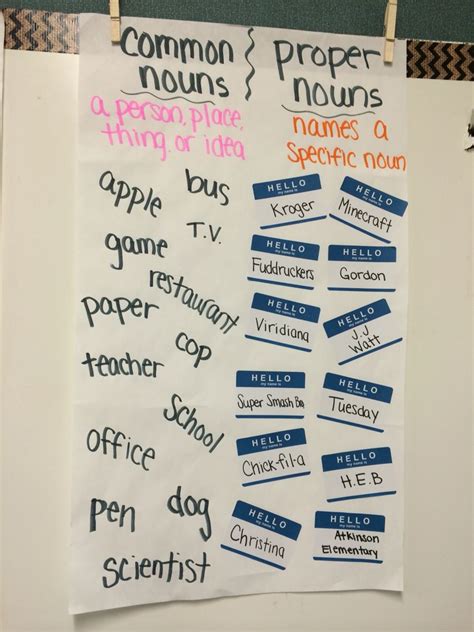 common nouns
a person, place,
thing, or idea
proper nouns
names a
specific noun
apple
bus
T.V.
game
restaurant
paper
cop
teacher
School
office
pen
dog
scientist
HELLO
my name is
Kroger
HELLO
my name is
Minecraft
HELLO
my name is
Fuddruckers
HELLO
my name is
Gordon
HELLO
my name is
Viridiana
HELLO
my name is
J.J
Watt
HELLO
my name is
Super Smash Bro
HELLO
my name is
Tuesday
HELLO
my name is
Chick-fil-a
HELLO
my name is
H.E.B
HELLO
my name is
Christina
HELLO
my name is
Atkinson
Elementary